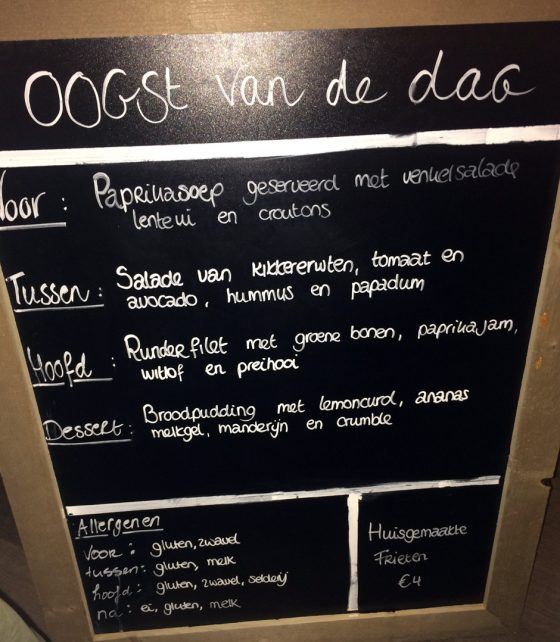 OOGSt van de dag
Voor : Paprikasoep geserveerd met venkelsalade
lenteui en croutons
Tussen : Salade van kikkererwten, tomaat en
avocado, hummus en papadum
Hoofd : Runderfilet met groene bonen, paprikajam,
witlof en preihooi
Dessert : Broodpudding met lemoncurd, ananas
melkgel, manderijn en crumble
Allergenen
voor : gluten, zwavel
tussen : gluten, melk
hoofd : gluten, zwavel, selderij
na : ei, gluten, melk
Huisgemaakte
Frieten
€4